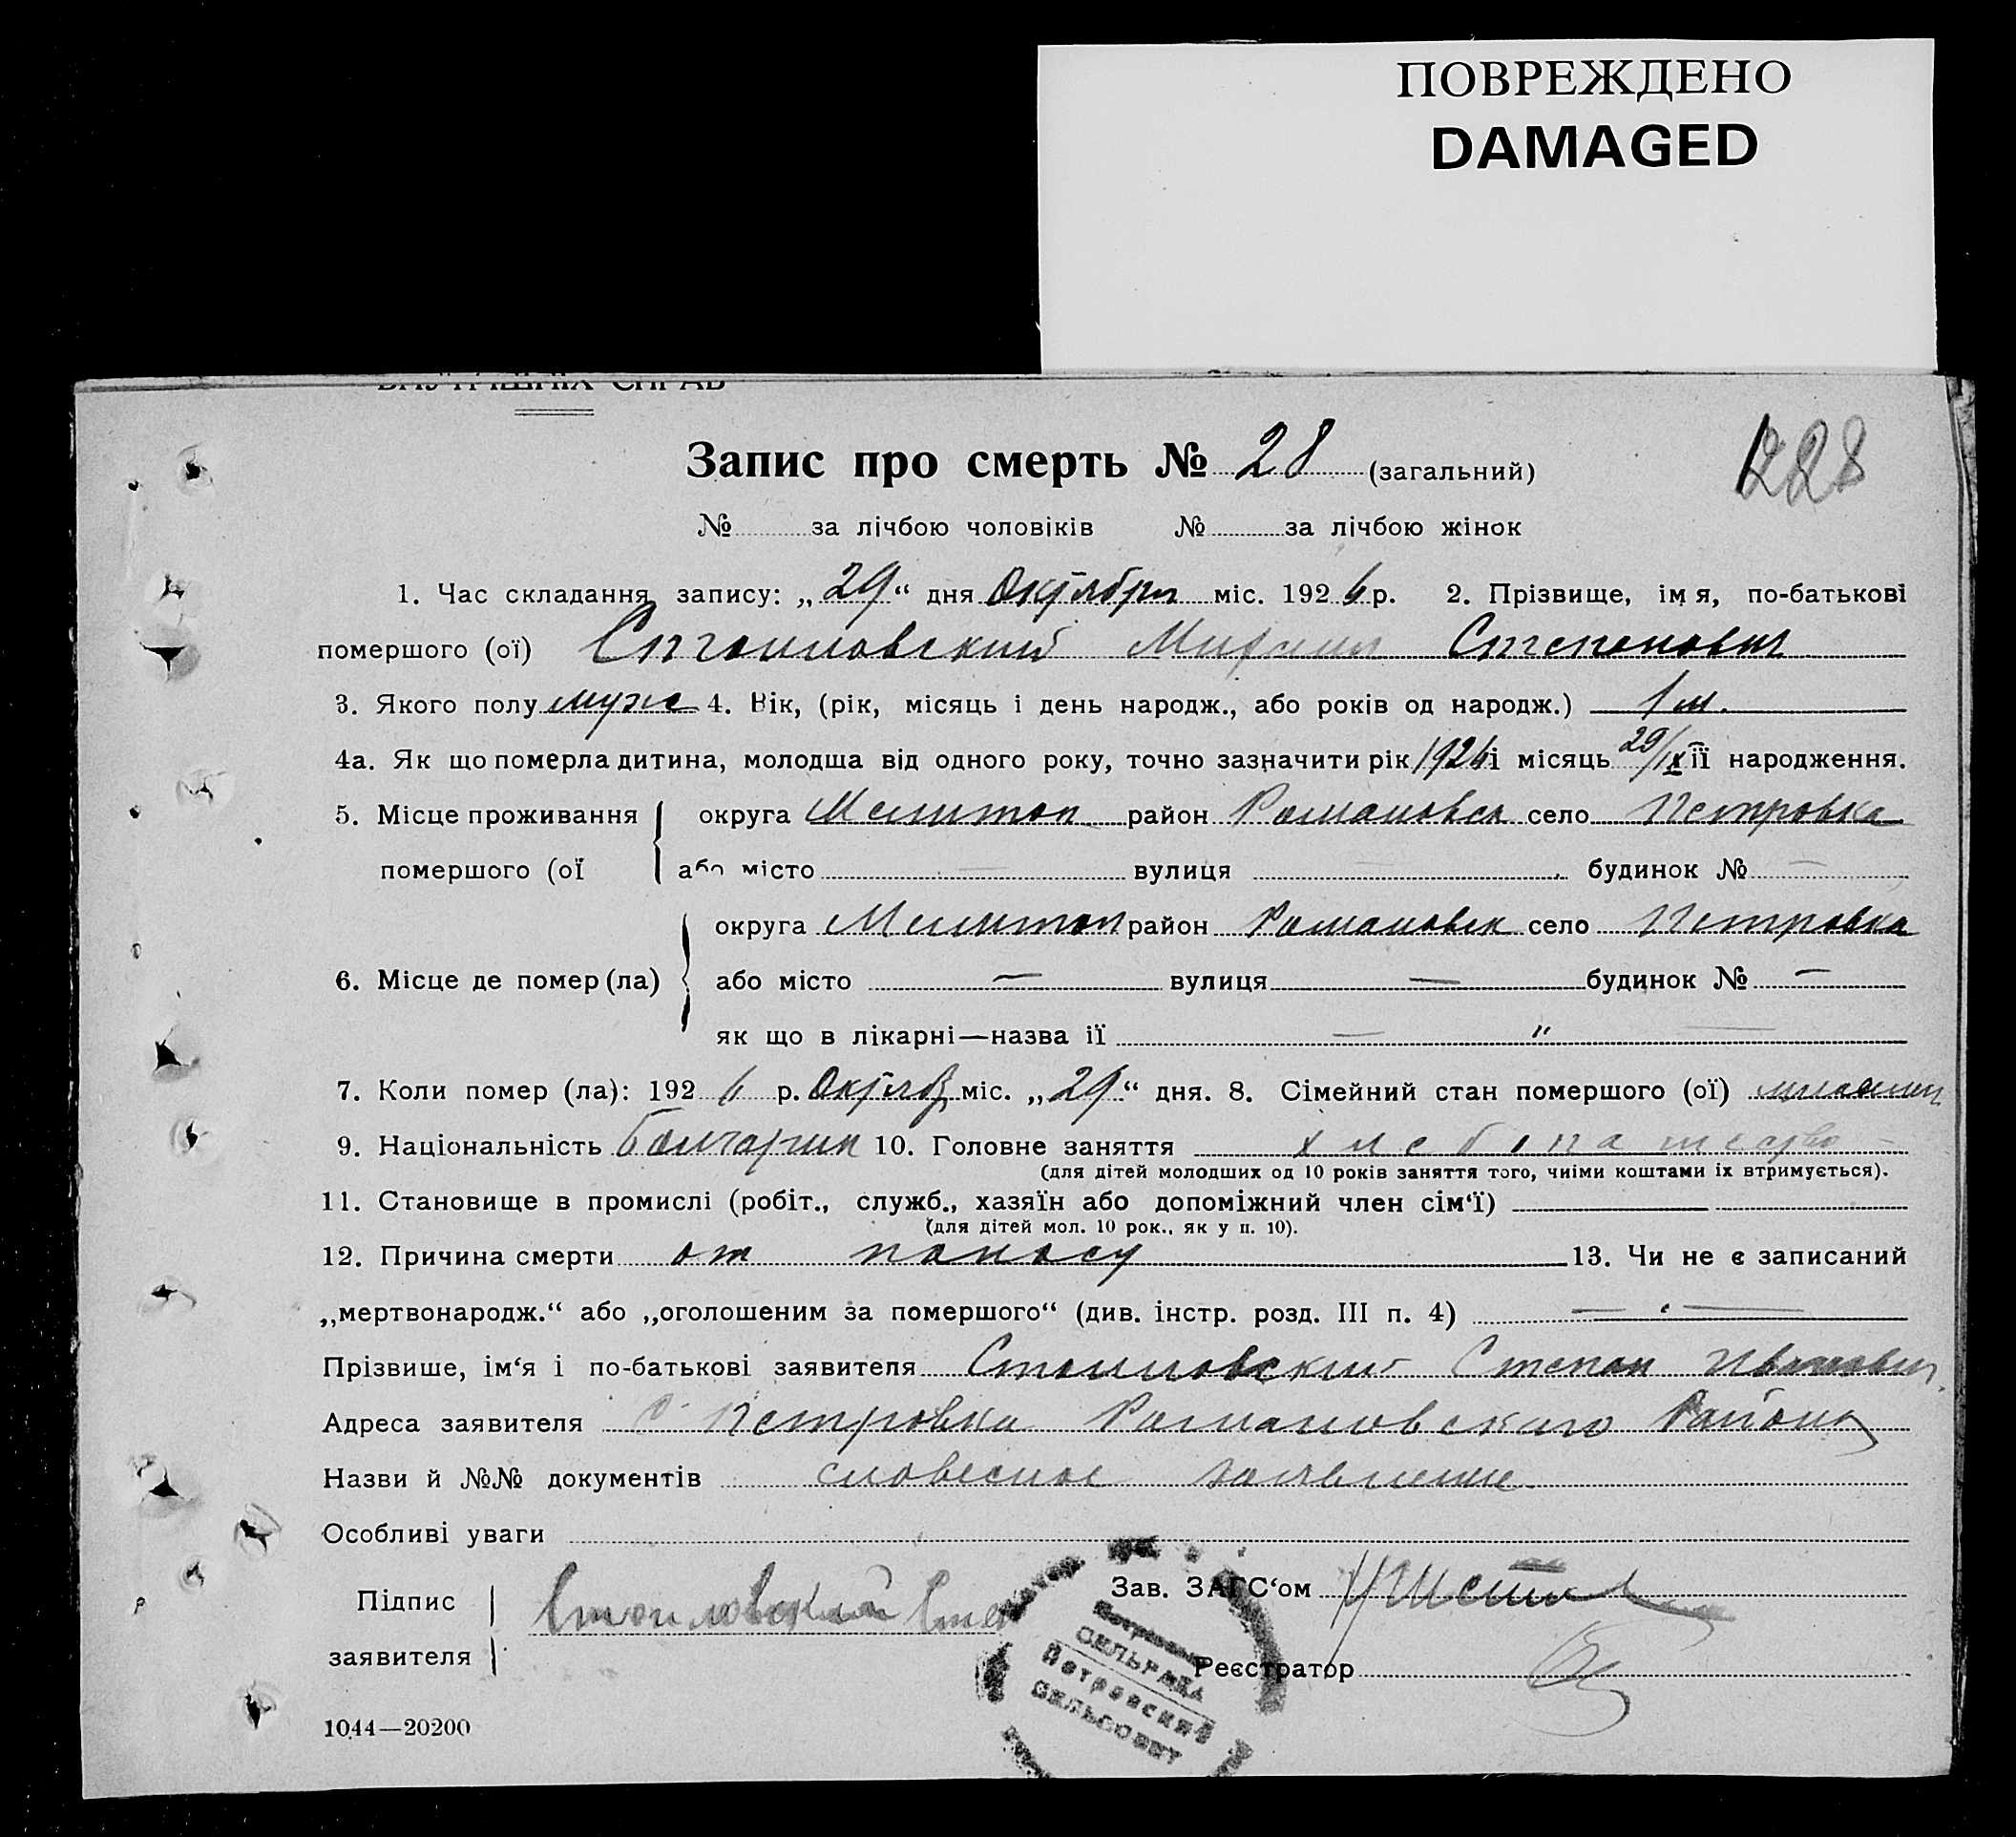 ПОВРЕЖДЕНО
DAMAGED
ВНУТРІШНІХ СПРАВ
Запис про смерть № 28 (загальний)
№ за лічбою чоловіків № за лічбою жінок
1. Час складання запису: „29“ дня Октября міс. 1926 р. 2. Прізвище, імя, по-батькові
помершого (ої) Стоиловский Степанович
3. Якого полу муж 4. Вік, (рік, місяць і день народж., або років од народж.) 1 м.
4а. Як що померла дитина, молодша від одного року, точно зазначити рік 1926 і місяць 29/IX її народження.
5. Місце проживання округа Мелитоп район Романовск село Петровка
помершого (ої або місто — вулиця — будинок № —
округа Мелитоп район Романовск село Петровка
6. Місце де помер (ла) або місто — вулиця — будинок № —
як що в лікарні—назва ії — „ —
7. Коли помер (ла): 1926 р. Октяб міс. „29“ дня. 8. Сімейний стан помершого (ої)
9. Національність болгарин 10. Головне заняття хлебопашество
(для дітей молодших од 10 років заняття того, чиїми коштами іх втримується).
11. Становище в промислі (робіт., служб., хазяїн або допоміжний член сім‘ї) —
(для дітей мол. 10 рок., як у п. 10).
12. Причина смерти от поносу 13. Чи не є записаний
„мертвонародж.“ або „оголошеним за помершого“ (див. інстр. розд. III п. 4) —
Прізвише, ім‘я і по-батькові заявителя Стоиловский Степан Иванович
Адреса заявителя с. Петровка Романовского Района
Назви й №№ документів словесное заявление
Особливі уваги
Підпис Стоиловский Сте Зав. ЗАГС‘ом
заявителя Реєстратор
СЕЛЬРАДА
Петровский
СЕЛЬСОВЕТ
1044—20200